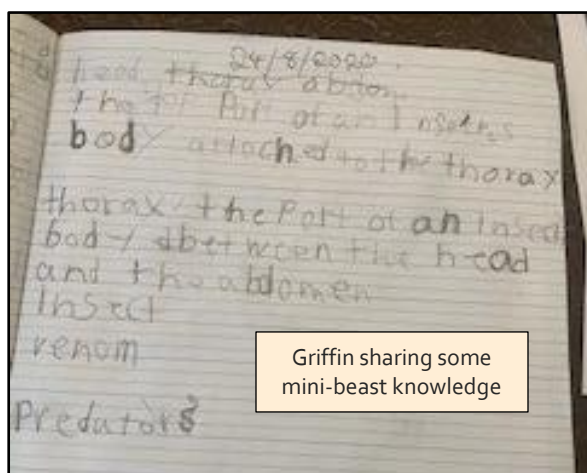 24/8/2022
head thorax abdom
the top Part of an Insects
body attached to the thorax
thorax the Part of an Insect
body between the head
and the abdomen
Insect
venom
Predators
Griffin sharing some
mini-beast knowledge